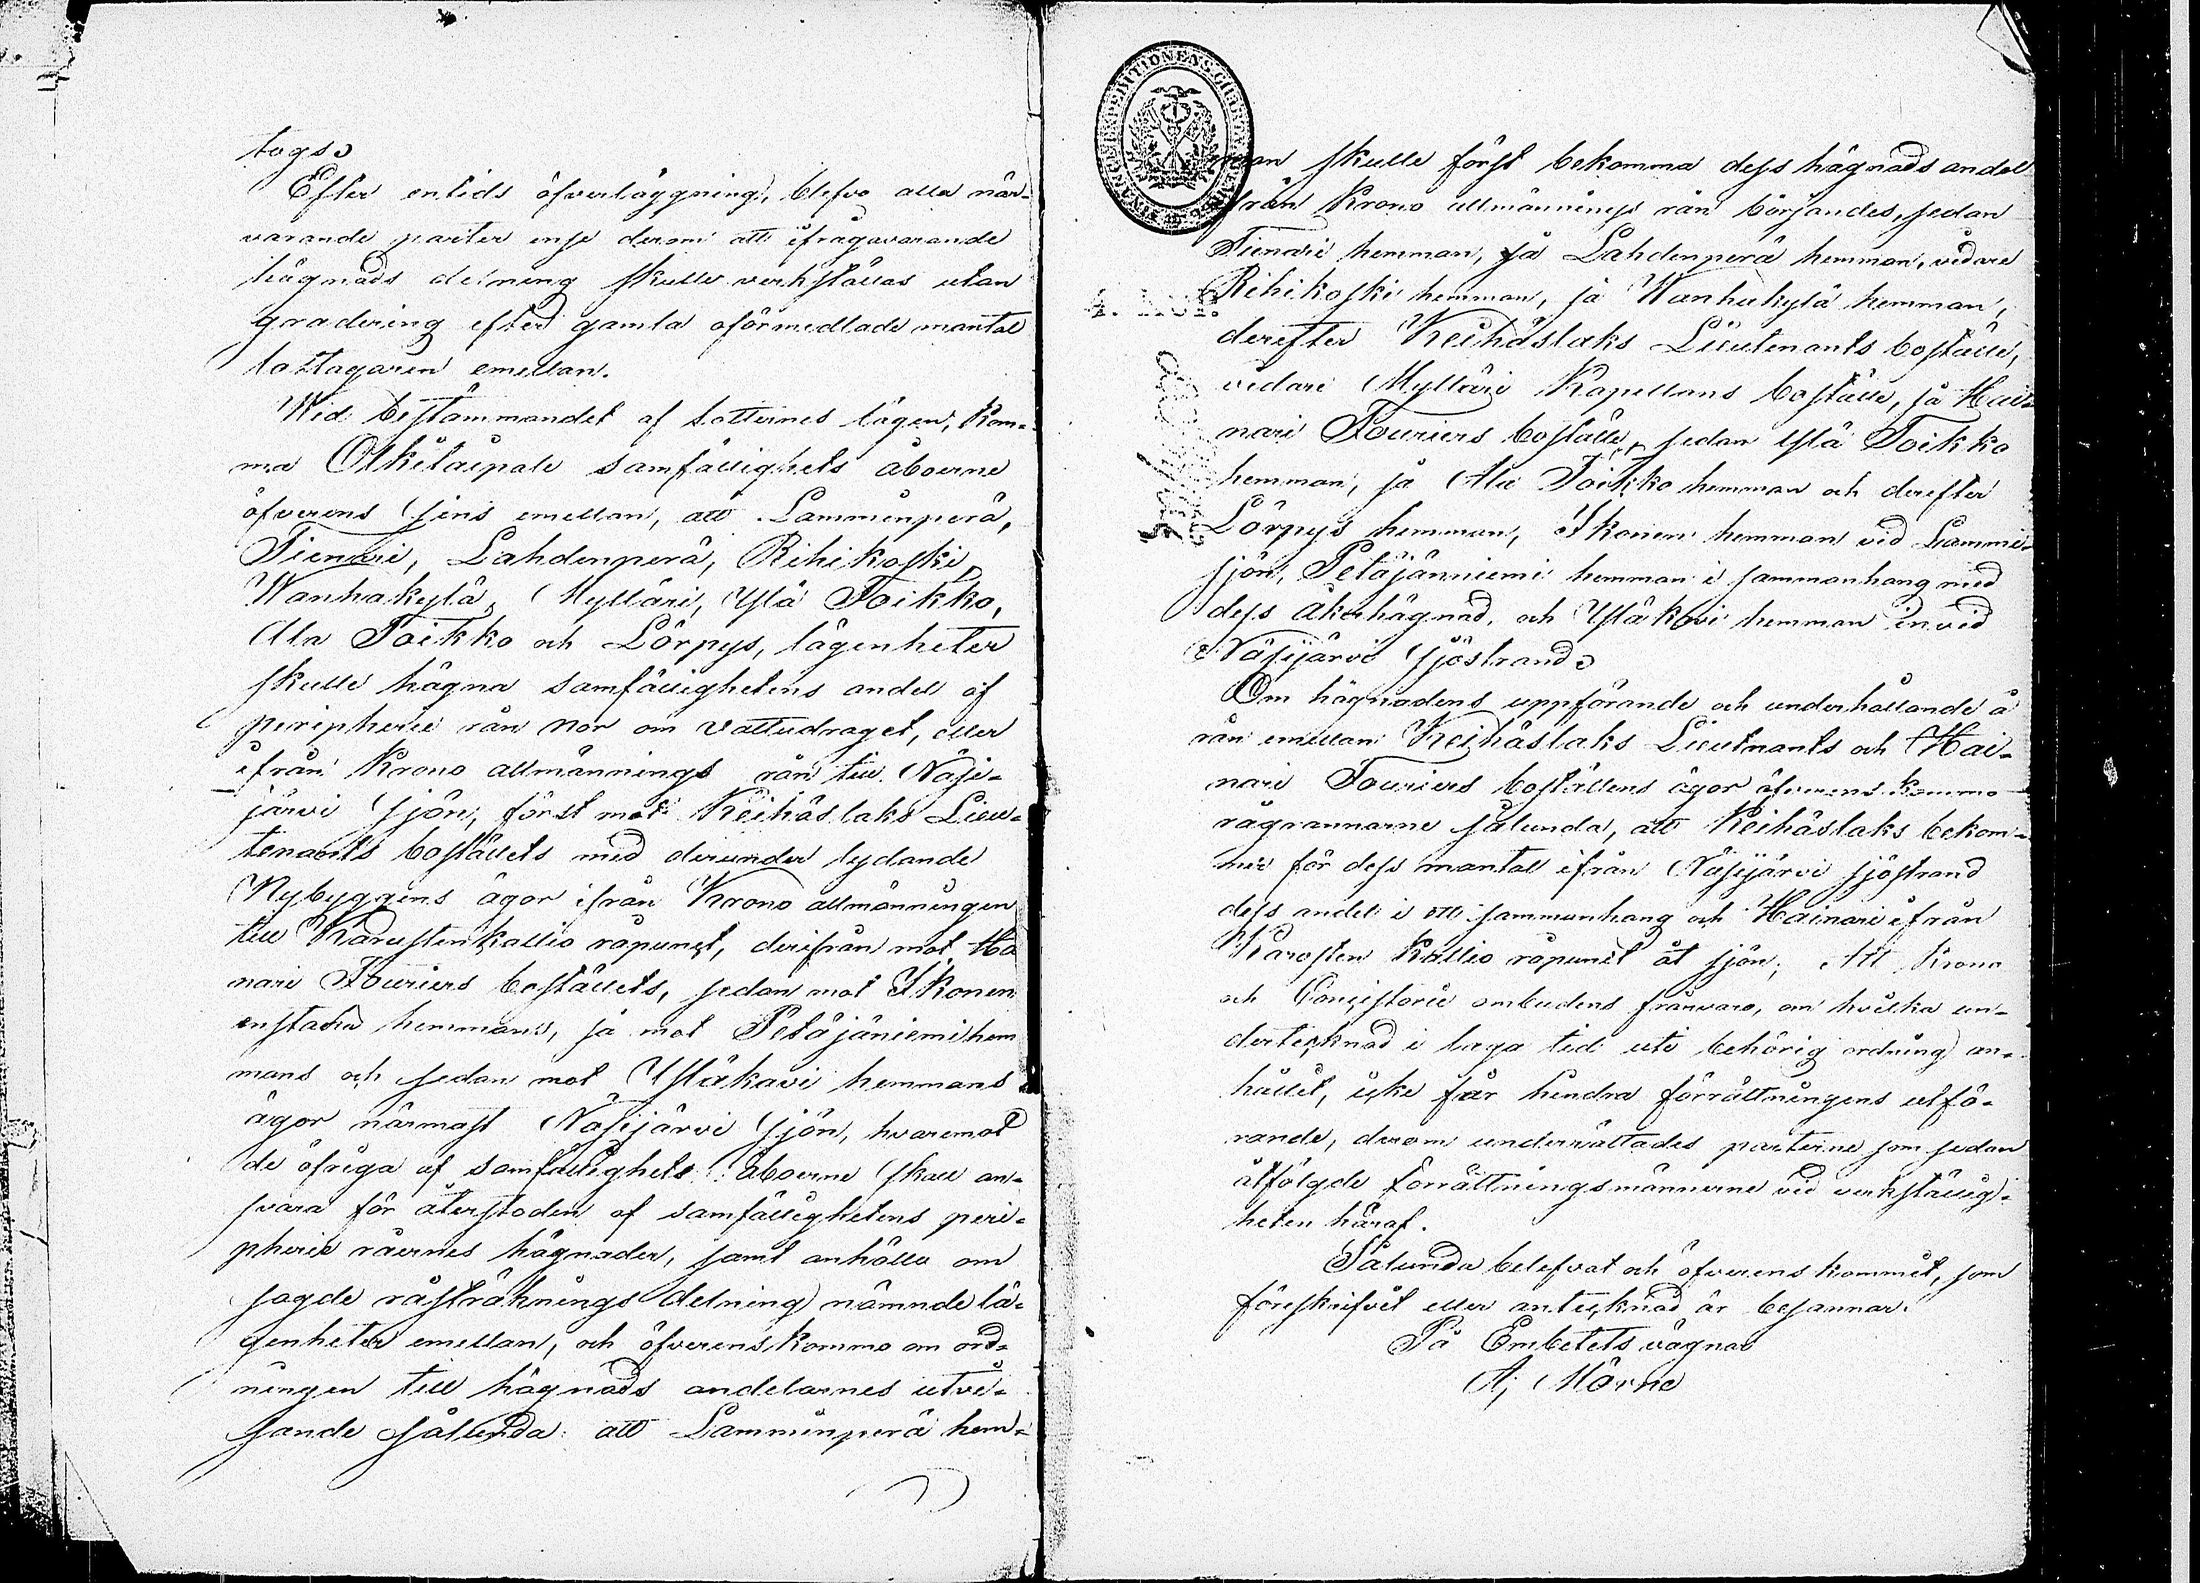 togs.
Efter en tids öfverläggning, blefvo alla när-
varande parter ense derom att ifrågavarande
hägnads delning skulle verkställas utan
gradering efter gamla oförmedlade mantal
lottagaren emellan.
Wid bestämmandet af lotternes lägen, kom-
ma Olkitaipale samfällighets åboerne
öfverens sins emellan, att Lamminperä,
Tienari, Lahdenperä, Rihikoski,
Wanhakylä, Mylläri, Ylä Toikko,
Ala Toikko och Lörpys, lägenheter
skulle hägna samfällighetens andel af
peripherie rån nor om vattudraget, eller
ifrån Krono allmännings rån till Näsi-
järvi Sjön, först mot Keihäslaks Lieu-
tenants boställets med derunder lydande
Nybyggens ägor ifrån Krono allmänningen
till Karusten kallio råpunct, derifrån mot Ha
nari Fouriers boställets, sedan mot Ikonen
enstaka hemmans, så mot Petäjäniemi hem
mans och sedan mot Yläkavi hemmans
ägor närmast Näsijärvi Sjön, hvaremot
de öfriga af samfällighets åboerne skall an-
svara för återstoden af samfällighetens peri-
pherie råernes hägnader, samt anhöllo om
sagde råsträknings delning nämnde lä-
genheter emellan, och öfverenskommo om ord-
ningen till hägnads andelarnes utvi-
sande sålunda: att Lamminperä hem-
man skulle först bekomma dess hägnads andel
från Krono allmännings rån börjandes, sedan
Tienari hemman, så Lahdenperä hemman, vidare
Rihikoski hemman, så Wanhakylä hemman,
derefter Keihäslaks Lieutenants boställe,
vidare Mylläri Kapellans boställe, så Hai-
nari Fouriers boställe, sedan Ylä Toikko
hemman, så Ala Toikko hemman och derefter
Lörpys hemman, Ikonen hemman vid Lammi-
sjön, Petäjänniemi hemman i sammanhang med
dess åkerhägnad, och Yläkavi hemman invid
Näsijärvi Sjöstrand.
Om hägnadens uppförande och underhållande å
rån emellan Keihäslaks Lieutnants och Hai-
nari Fouriers boställens ägor öfverens kommo
rågrannarne sålunda, att Keihäslaks bekom-
mer för dess mantal ifrån Näsijärvi sjöstrand
dess andel i ett sammanhang och Hainari ifrån
Karosten Kallio råpunct åt sjön; Att Krono
och Consistorii ombudens frånvaro, om hvilka un-
dertecknad i laga tid uti behörig ordning an-
hållit, icke får hindra förrättningens utfö-
rande, derom underrättades parterne som sedan
åtfölgde förrättningsmännerne vid verkställig-
heten häraf.
Sålunda belefvat och öfverenskommit, som
föreskrifvit eller antecknad är besannar.
På Embetets vägnar
A, Mörne